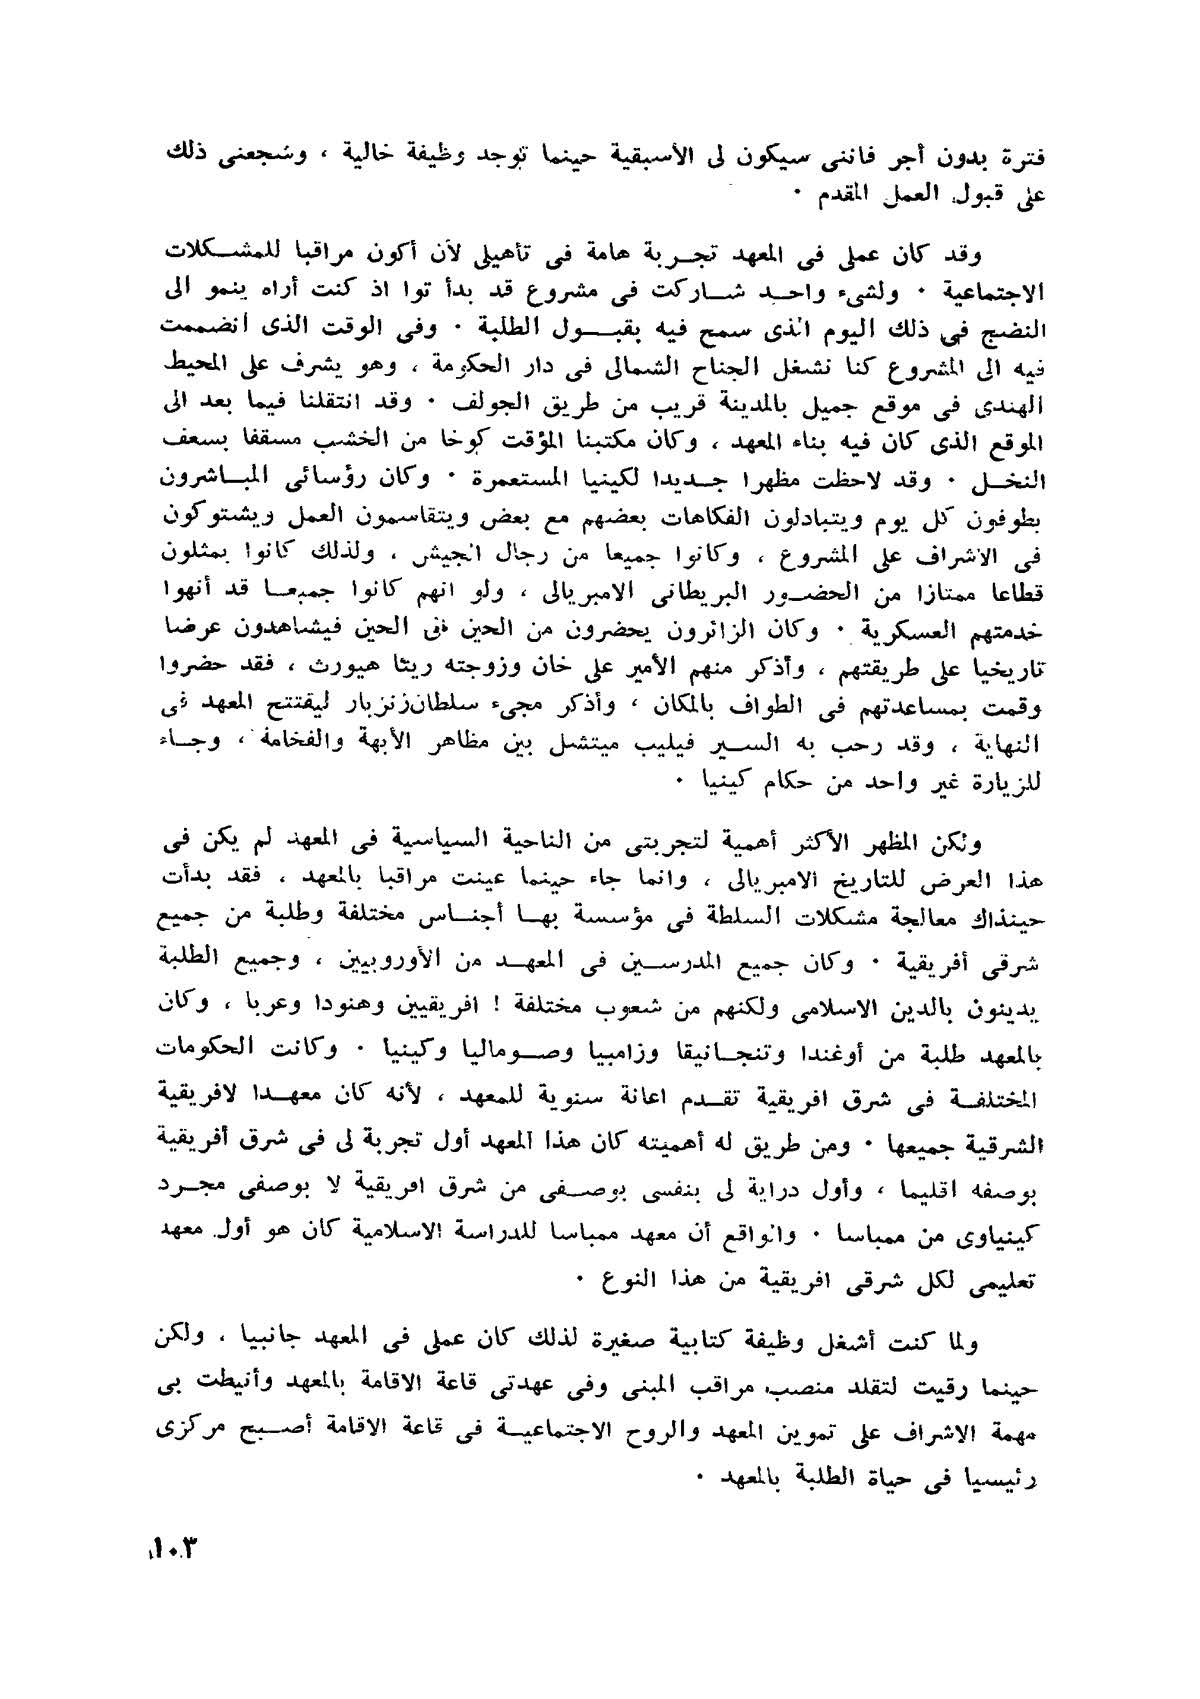 فترة بدون أجر فاننى سيكون لى الأسبقية حينما توجد وظيفة خالية ، وشجعنى ذلك
على قبول العمل المقدم ٠
وقد كان عملى فى المعهد تجربة هامة فى تأهيلى لأن أكون مراقبا للمشكلات
الاجتماعية ٠ ولشىء واحد شاركت فى مشروع قد بدأ توا اذ كنت أراه ينمو الى
النضج فى ذلك اليوم الذى سمح فيه بقبول الطلبة ٠ وفى الوقت الذى انضممت
فيه الى المشروع كنا نشغل الجناح الشمالى فى دار الحكومة ، وهو يشرف على المحيط
الهندى فى موقع جميل بالمدينة قريب من طريق الجولف ٠ وقد انتقلنا فيما بعد الى
الموقع الذى كان فيه بناء المعهد ، وكان مكتبنا المؤقت كوخا من الخشب مسقفا بسعف
النخل ٠ وقد لاحظت مظهرا جديدا لكينيا المستعمرة ٠ وكان رؤسائى المباشرون
يطوفون كل يوم ويتبادلون الفكاهات بعضهم مع بعض ويتقاسمون العمل ويشتركون
فى الاشراف على المشروع ، وكانوا جميعا من رجال الجيش ، ولذلك كانوا يمثلون
قطاعا ممتازا من الحضور البريطانى الامبريالى ، ولو انهم كانوا جميعا قد أنهوا
خدمتهم العسكرية ٠ وكان الزائرون يحضرون من الحين فى الحين فيشاهدون عرضا
تاريخيا على طريقتهم ، وأذكر منهم الأمير على خان وزوجته ريتا هيورث ، فقد حضروا
وقمت بمساعدتهم فى الطواف بالمكان ، وأذكر مجىء سلطان زنزبار ليفتتح المعهد فى
النهاية ، وقد رحب به السير فيليب ميتشل بين مظاهر الأبهة والفخامة ، وجاء
للزيارة غير واحد من حكام كينيا ٠
ولكن المظهر الأكثر أهمية لتجربتى من الناحية السياسية فى المعهد لم يكن فى
هذا العرض للتاريخ الامبريالى ، وانما جاء حينما عينت مراقبا بالمعهد ، فقد بدأت
حينذاك معالجة مشكلات السلطة فى مؤسسة بها أجناس مختلفة وطلبة من جميع
شرقى أفريقية ٠ وكان جميع المدرسين فى المعهد من الأوروبيين ، وجميع الطلبة
يدينون بالدين الاسلامى ولكنهم من شعوب مختلفة ! افريقيين وهنودا وعربا ، وكان
بالمعهد طلبة من أوغندا وتنجانيقا وزامبيا وصوماليا وكينيا ٠ وكانت الحكومات
المختلفة فى شرق افريقية تقدم اعانة سنوية للمعهد ، لأنه كان معهدا لافريقية
الشرقية جميعها ٠ ومن طريق له أهميته كان هذا المعهد أول تجربة لى فى شرق أفريقية
بوصفه اقليما ، وأول دراية لى بنفسى بوصفى من شرق افريقية لا بوصفى مجرد
كينياوى من ممباسا ٠ والواقع أن معهد ممباسا للدراسة الاسلامية كان هو أول معهد
تعليمى لكل شرقى افريقية من هذا النوع ٠
ولما كنت أشغل وظيفة كتابية صغيرة لذلك كان عملى فى المعهد جانبيا ، ولكن
حينما رقيت لتقلد منصب مراقب المبنى وفى عهدتى قاعة الاقامة بالمعهد وأنيطت بى
مهمة الاشراف على تموين المعهد والروح الاجتماعية فى قاعة الاقامة أصبح مركزى
رئيسيا فى حياة الطلبة بالمعهد ٠
١٠٣